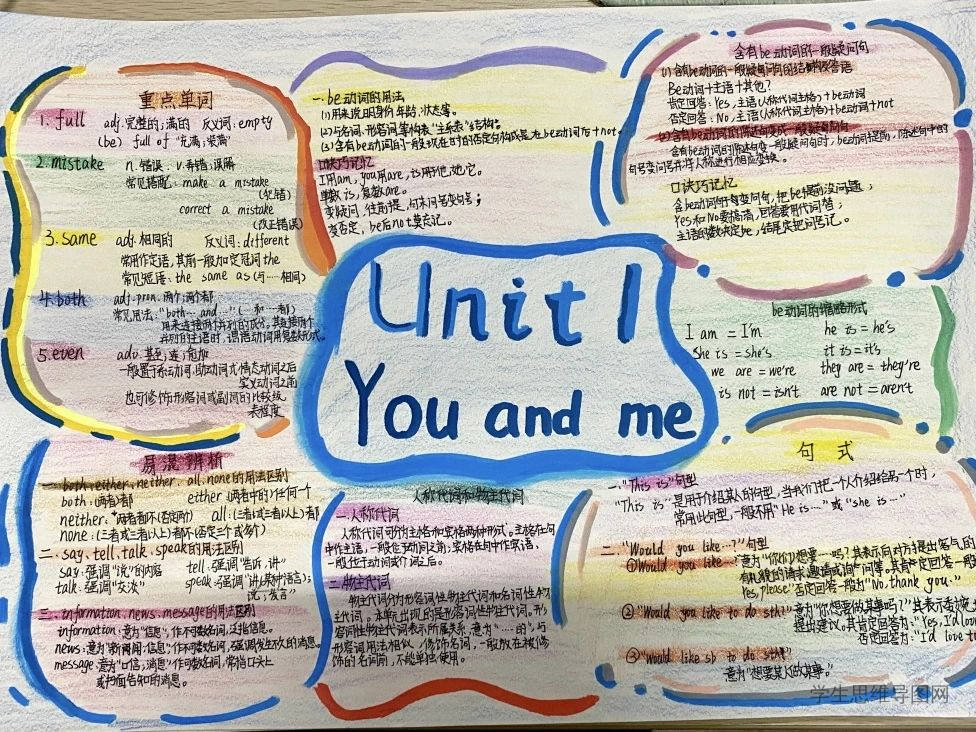 Unit 1
You and me
重点单词
1. full adj.完整的;满的 反义词:empty
(be) full of "充满;装满"
2. mistake n.错误 v.弄错;误解
常见搭配: make a mistake
(犯错)
correct a mistake
(改正错误)
3. same adj.相同的 反义词: different
常用作定语,其前一般加定冠词the
常见短语: the same as (与……相同)
4. both adj.pron.两个;两个都
常见用法: "both… and …" ( 和…都)
用来连接两个并列的成分。其连接两个
并列的主语时,谓语动词用复数形式。
5. even adv.甚至;连;更加
一般置于系动词,助动词或情态动词之后
实义动词之前
也可修饰形容词或副词的比较级
表程度
一.be动词的用法
(1)用来说明身份、年龄、状态等。
(2)与名词、形容词等构表"主系表"结构。
(3)含有be动词的一般现在时的否定句构成是在be动词后+not。
口诀巧记忆
I用am, you用are, is用他她它。
单数is,复数are。
变疑问,往前提,句末问号变句号;
变否定,be后not莫忘记。
含有be动词的一般疑问句
(1)含有be动词的一般疑问句的结构及答语
Be动词+主语+其他?
肯定回答: Yes,主语(人称代词主格)+be动词
否定回答: No,主语(人称代词主格)+be动词+not
(2)含有be动词的陈述句变成一般疑问句
含有be动词的陈述句变一般疑问句时,be动词提前,陈述句中的
句号变问号并将人称进行相应变换。
口诀巧记忆
含be动词的句子变问句,把be提前没问题;
Yes和No要搞清,回答要用代词替;
主语的数决定be,结尾定把问号记。
be动词的缩略形式
I am = I'm he is = he's
she is = she's it is = it's
we are = we're they are = they're
is not = isn't are not = aren't
易混辨析
一.both,either,neither, all, none的用法区别
both:(两者)都 either(两者中的)任何一个
neither:"两者都不(否定前) all:(三者或三者以上)都
none:(三者或三者以上)都不(否定三个或多个)
二.say、tell、talk、speak的用法区别
say:强调"说"的内容 tell:强调"告诉,讲"
talk:强调"交谈" speak:强调"讲(某种语言);
说;发言"
三.information、news、message的用法区别
information:意为"信息",作不可数名词,泛指信息。
news:意为"新闻消息"作不可数名词,强调发生不久的消息。
message:意为"口信,消息"作可数名词,常指口头上
或书面告知的消息。
人称代词和物主代词
一.人称代词
人称代词可分为主格和宾格两种形式。主格在句
中作主语,一般位于动词之前;宾格在句中作宾语,
一般位于动词或介词之后。
二.物主代词
物主代词分为形容词性物主代词和名词性物
主代词。本单元出现的是形容词性物主代词。形
容词性物主代词表示所属关系,意为"……的",与
形容词用法相似,修饰名词,一般放在被修
饰的名词前,不能单独使用。
句式
一."This is"句型
"This is"是用于介绍某人的句型,当我们把一个人介绍给另一个时,
常用此句型,一般不用"He is…"或"she is…"
二."Would you like…?"句型
①"Would you like…?"意为"你(们)想要…吗?"其表示向对方提出客气的
有礼貌的请求、邀请或询问等。其肯定回答一般
Yes, please"否定回答一般为"No, thank you."
②"Would you like to do sth?"意为"你想要做某事吗?"其表示委婉
提出建议。其肯定回答为:"Yes, I'd love
否定回答为:"I'd love t
③"Would like sb to do sth"
意为"想要某人做某事。
学生思维导图网